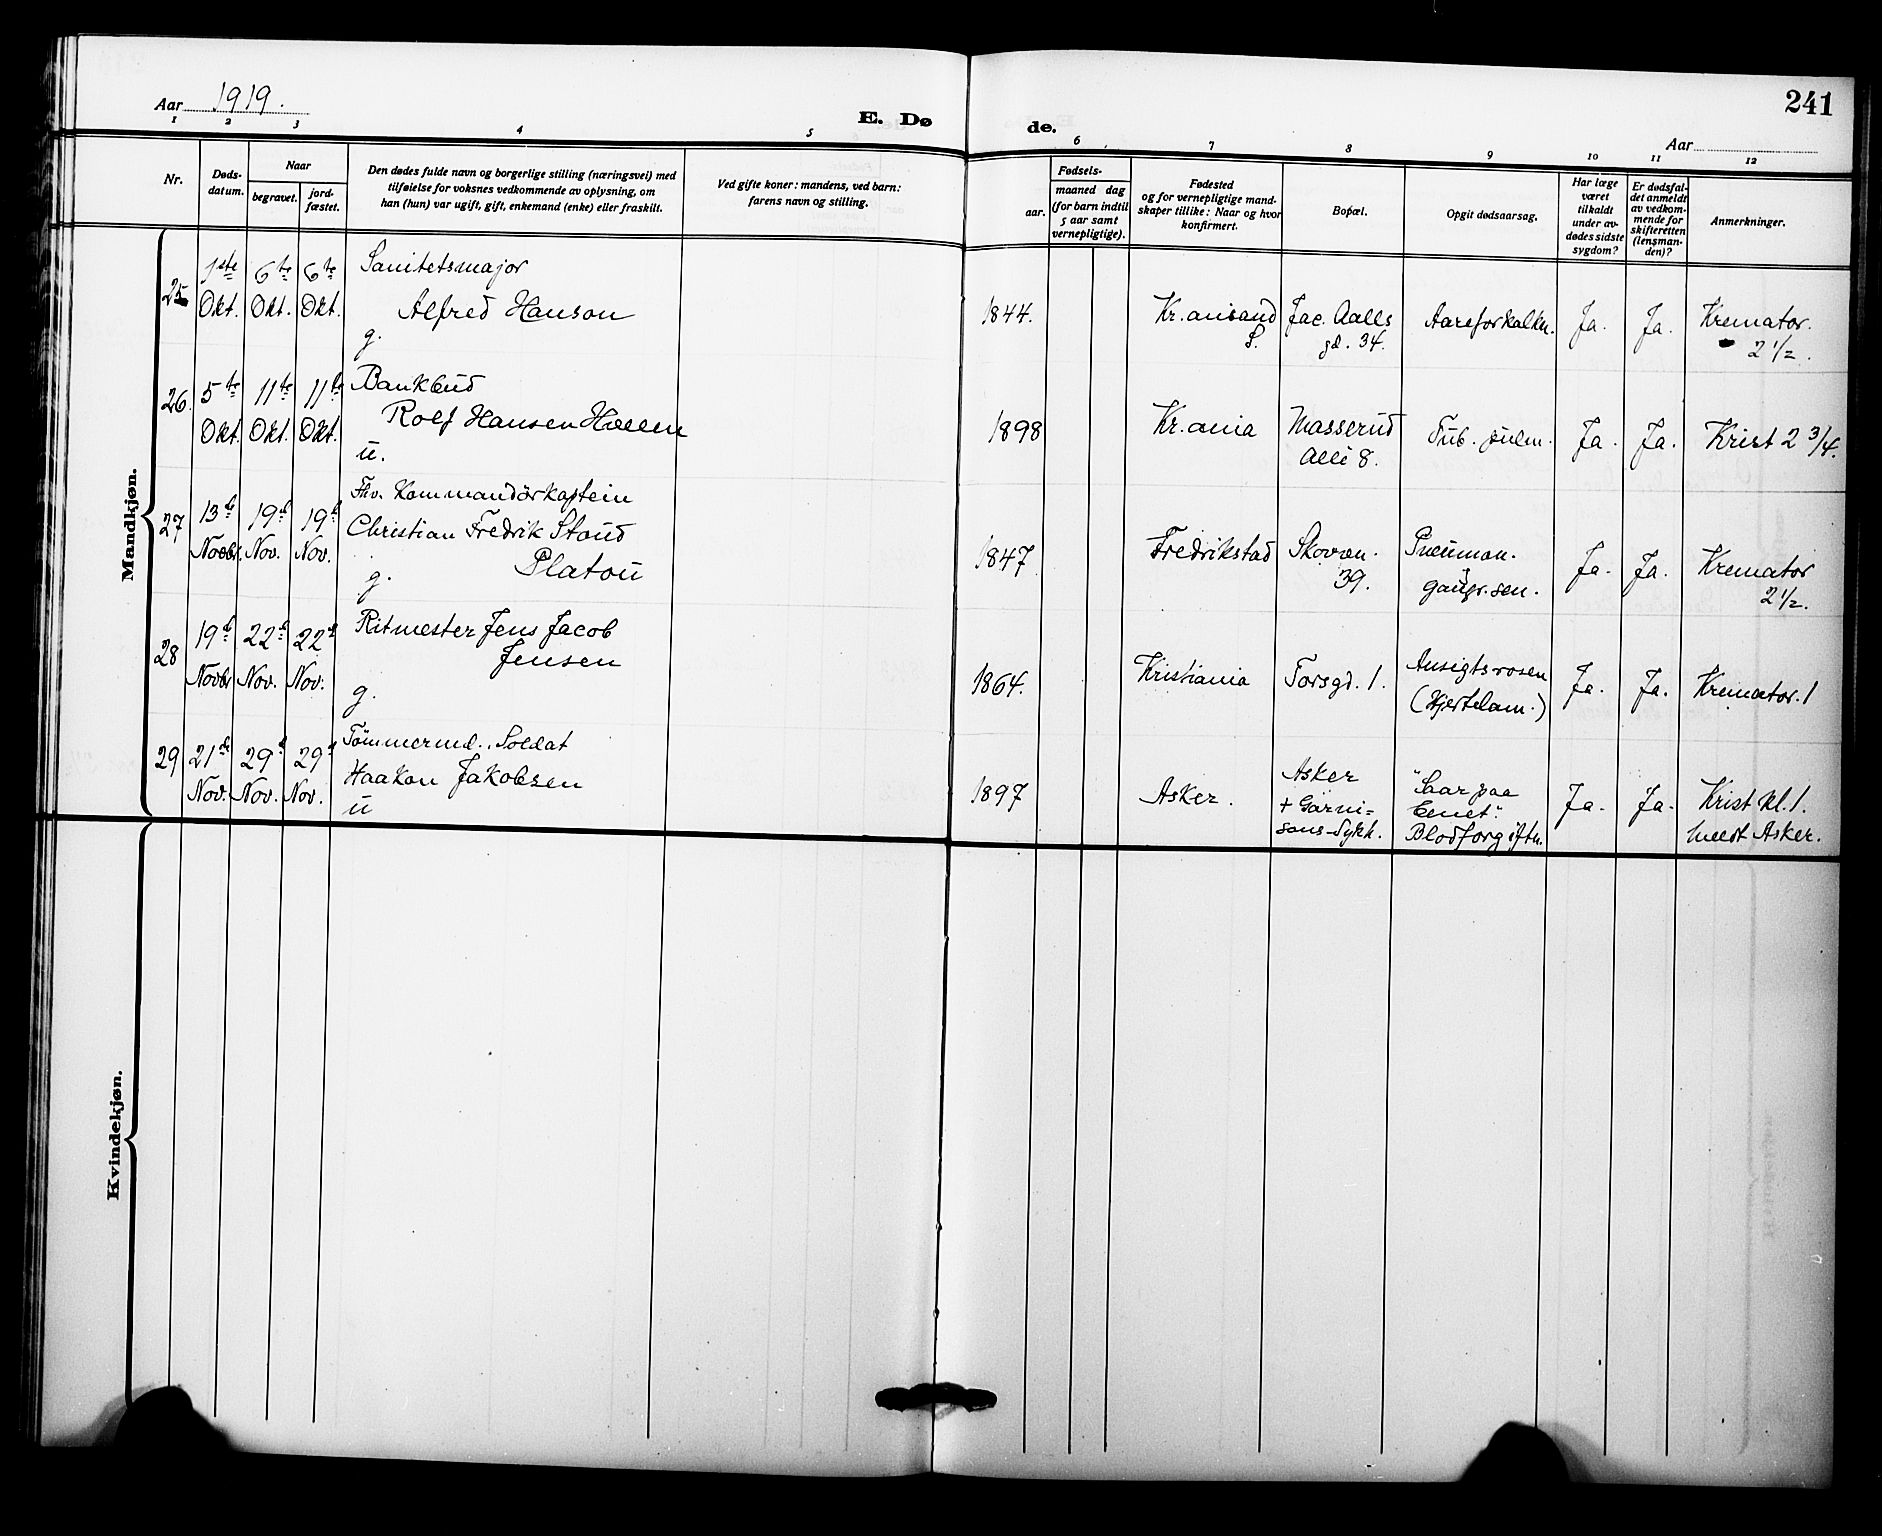 Aar 1919.
E. Døde.
241
Aar
1 2 3 4 5 6 7 8 9 10 11 12
Nr.
Døds-
datum.
Naar
begravet.
jord-
fæstet.
Den dødes fulde navn og borgerlige stilling (næringsvei) med
tilføielse for voksnes vedkommende av oplysning, om
han (hun) var ugift, gift, enkemand (enke) eller fraskilt.
Ved gifte koner: mandens, ved barn:
farens navn og stilling.
Fødsels-
aar.
maaned dag
(for barn indtil
5 aar samt
vernepligtige).
Fødested
og for vernepligtige mand-
skaper tillike: Naar og hvor
konfirmert.
Bopæl.
Opgit dødsaarsag.
Har læge
været
tilkaldt
under av-
dødes sidste
sygdom?
Er dødsfal-
det anmeldt
av vedkom-
mende for
skifteretten
(lensman-
den)?
Anmerkninger.
Mandkjøn.
25 1ste Okt. 6te Okt. 6te Okt.
Sanitetsmajor
Alfred Hanson
g.
1844.
Kr.ansand
S.
Jac. Aalls
gd. 34.
Aareforkalkn.
Ja.
Ja.
Kremator.
2 1/2.
26. 5te Okt. 11te Okt. 11te Okt.
Bankbud
Rolf Hansen
u.
1898
Kr.ania
Masserud
Alle 8.
Tub. pulm.
Ja.
Ja.
Krist 2 3/4.
27 13de Novbr. 19d Nov. 19d Nov.
Fhv. Kommandörkaptein
Christian Fredrik Stoud
Platou
g.
1847
Fredrikstad
Skovvn.
39.
Pneumon.
gangr. sen.
Ja.
Ja.
Kremator
2 1/2.
28 19d Novbr 22d Nov. 22d Nov.
Ritmester Jens Jacob
Jensen
g.
1864.
Kristiania
Torsgd. 1.
Ansigtsrosen
(Hjertelam.)
Ja.
Ja.
Kremator. 1
29 21de Nov. 29d Nov. 29d Nov.
Tömmermd. Soldat
Haakon Jakobsen
u
1897
Asker.
Asker
+ Garni=
sons-Sykh.
"Saar paa
Benet".
Blodforgiftn.
Ja.
Ja.
Krist kl. 1.
Asker.
Kvindekjøn.